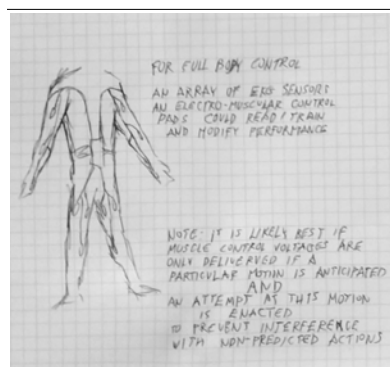 FOR FULL BODY CONTROL
AN ARRAY OF EKG SENSORS
AN ELECTRO-MUSCULAR CONTROL
PADS COULD READ/TRAIN
AND MODIFY PERFORMANCE
NOTE: IT IS LIKELY BEST IF
MUSCLE CONTROL VOLTAGES ARE
ONLY DELIVERVED IF A
PARTICULAR MOTION IS ANTICIPATED
AND
AN ATTEMPT AT THIS MOTION
IS ENACTED
TO PREVENT INTERFERENCE
WITH NON-PREDICTED ACTIONS